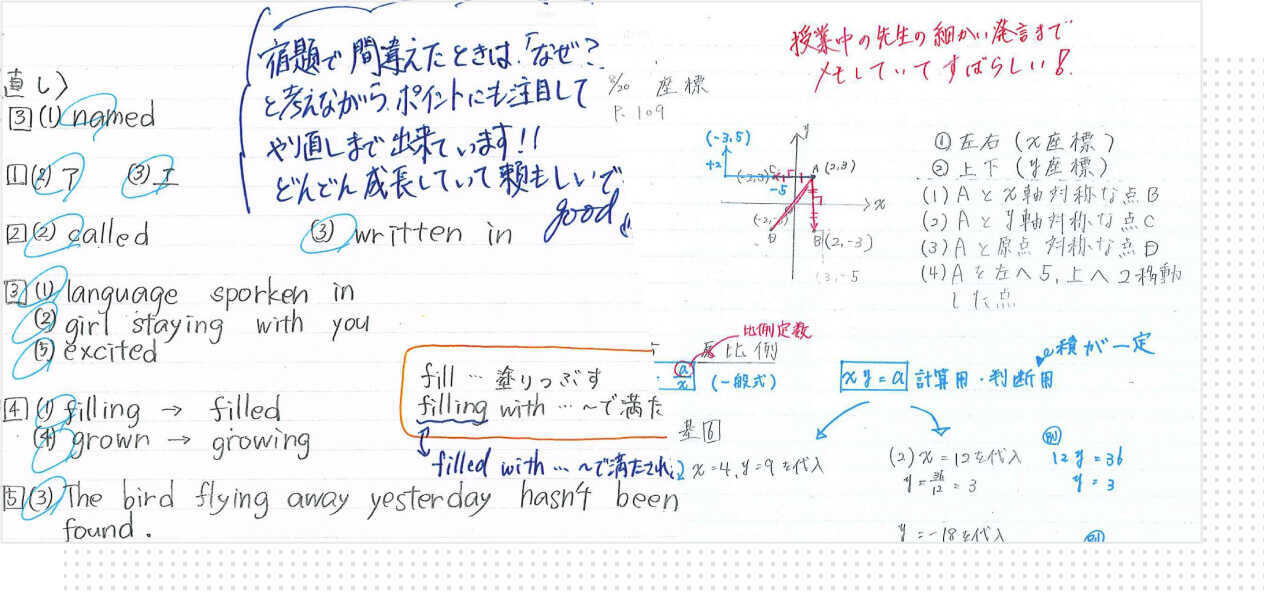 直し〉
宿題で間違えたときは、「なぜ?
と考えながら、ポイントにも注目して
やり直しまで出来ています!!
どんどん成長していて頼もしいで
good
3 (1) named
1 (2) ア (3) エ
2 (2) called (3) written in
3 (1) language sporken in
(2) girl staying with you
(5) excited
4 (1) filling → filled
(4) grown → growing
5 (3) The bird flying away yesterday hasn't been
found.
fill … 塗りつぶす
filling with … 〜で満た
filled with … 〜で満たされ
授業中の先生の細かい発言まで
メモしていてすばらしい!
8/20 座標
P. 109
(-3,5)
+2
-5
y
A (2,3)
(-2,3)
x
B (2,-3)
D
(3,-5
① 左右 (x座標)
② 上下 (y座標)
(1) Aとx軸対称な点B
(2) Aとy軸対称な点C
(3) Aと原点対称な点D
(4) Aを左へ5,上へ2移動
した点
比例定数
反比例
a/x (一般式)
xy=a 計算用・判断用
積が一定
基6
x=4,y=9を代入
(2) x=12を代入
y=36/12=3
例
12y=36
y=3
y=-18を代入
例